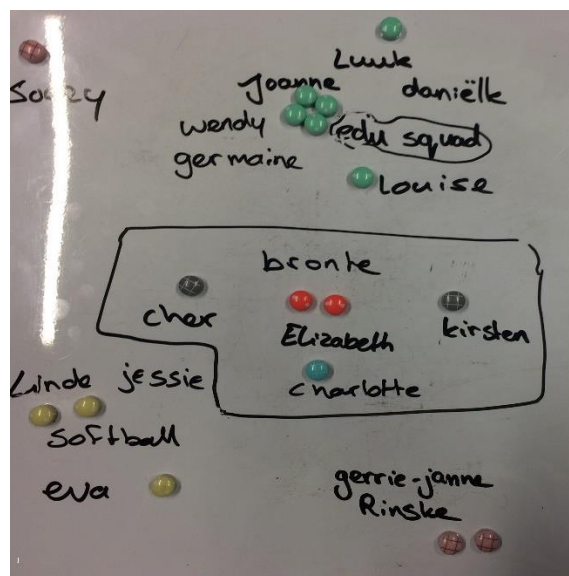 Luuk
Joanne
daniëlle
wendy
edu squad
germaine
Louise
bronte
cher
Elizabeth
kirsten
charlotte
Linda
jessie
softball
eva
gerrie-janne
Rinske